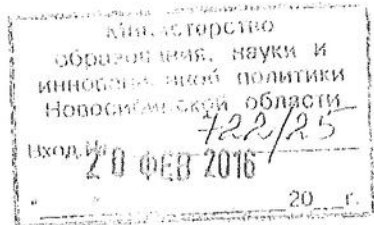 Министерство
образования, науки и
инновационной политики
Новосибирской области
Вход.№ 722/25
20 ФЕВ 2016
" 20 г.